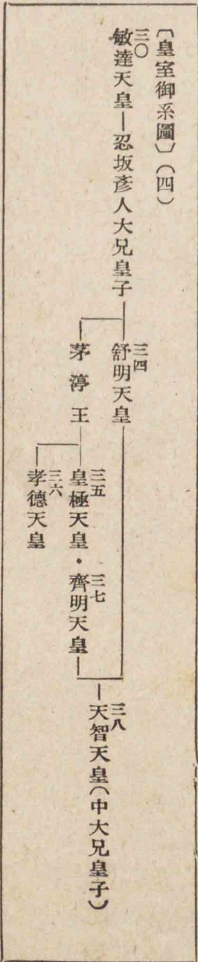 〔皇室御系圖〕（四）
三〇
敏達天皇―忍坂彥人大兄皇子
三四
舒明天皇
茅渟王
三五
皇極天皇・
三七
齊明天皇
三六
孝德天皇
三八
天智天皇（中大兄皇子）